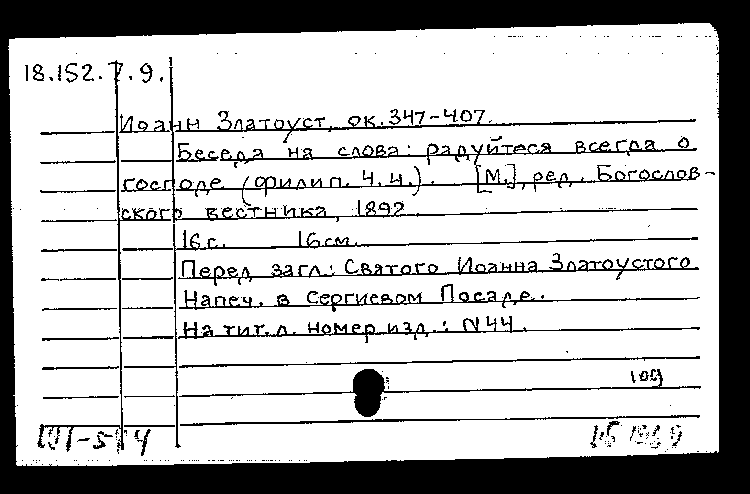 18.152.7.9.
Иоанн Златоуст, ок. 347-407.
Беседа на слова: радуйтеся всегда о
господе (филип. 4. 4.). [М.], ред. Богослов-
ского вестника, 1892.
16 с. 16 см.
Перед загл.: Святого Иоанна Златоустого.
Напеч. в Сергиевом Посаде.
На тит. л. номер изд.: N 44.
109